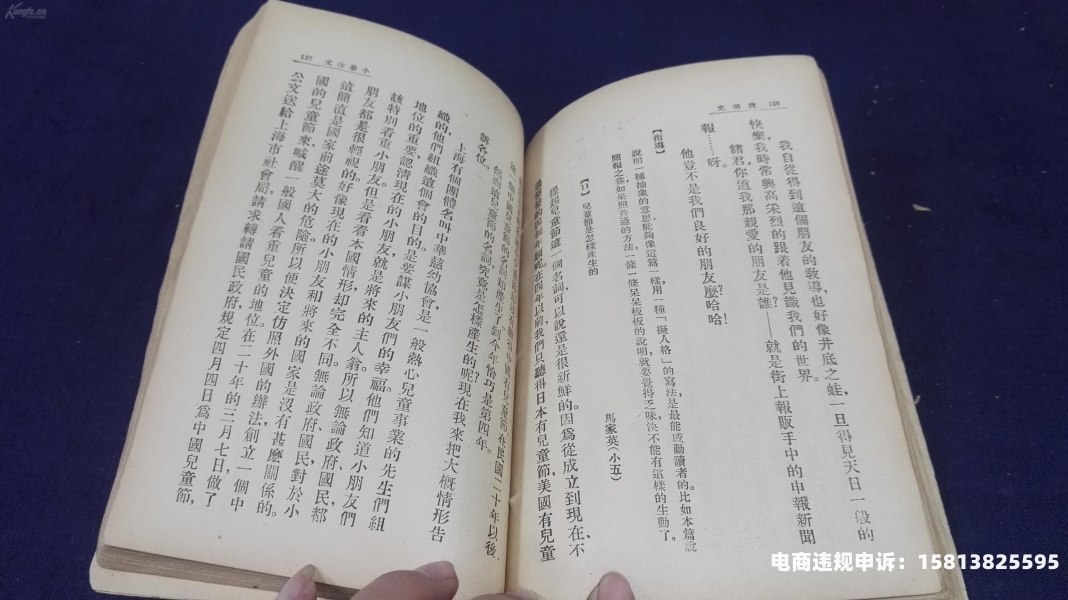 Kongfz.cn
說明文 136
我自從得到這個朋友的教導，也好像井底之蛙，一旦得見天日一般的
快樂，我時常興高采烈的跟着他見識我們的世界。
諸君，你道我那親愛的朋友是誰？——就是街上報販手中的申報新聞
報……呀。
他豈不是我們良好的朋友麼？哈哈！
【指導】
說明一種抽象的意思，能夠像這篇一樣，用一種「擬人格」的寫法，是最能感動讀者的。比如本篇說
閱報之益，如果照普通的方法，一條一條呆呆板板的說明，就要覺得乏味，決不能有這樣的生動了。
兒童節是怎樣產生的
馬家英（小五）
提起兒童節這一個名詞，可以說還是很新鮮的。因為從成立到現在，不
在四年以前，我們只聽得日本有兒童節，美國有兒童
137 小學作文
在民國二十年以後，
然而這兒童節的名詞，究竟是怎樣產生的呢？現在我來把大概情形告
訴各位。
上海有個團體，名叫中華慈幼協會，是一般熱心兒童事業的先生們組
織的，他們組織這個會的目的，是要謀小朋友們的幸福。他們知道小朋友們
地位的重要，認清現在的小朋友，就是將來的主人翁，所以無論政府國民，都
該特別看重小朋友。但是看看本國情形，却完全不同。無論政府國民，對於小
朋友都是很輕視的，好像現在的小朋友和將來的國家是沒有甚麼關係的。
這簡直是國家前途莫大的危險，所以便決定仿照外國的辦法，創立一個中
國的兒童節，來喚醒一般國人看重兒童的地位。在二十年的三月七日，做了
公文送給上海市社會局，請求轉請國民政府，規定四月四日為中國兒童節，
电商违规申诉：15813825595